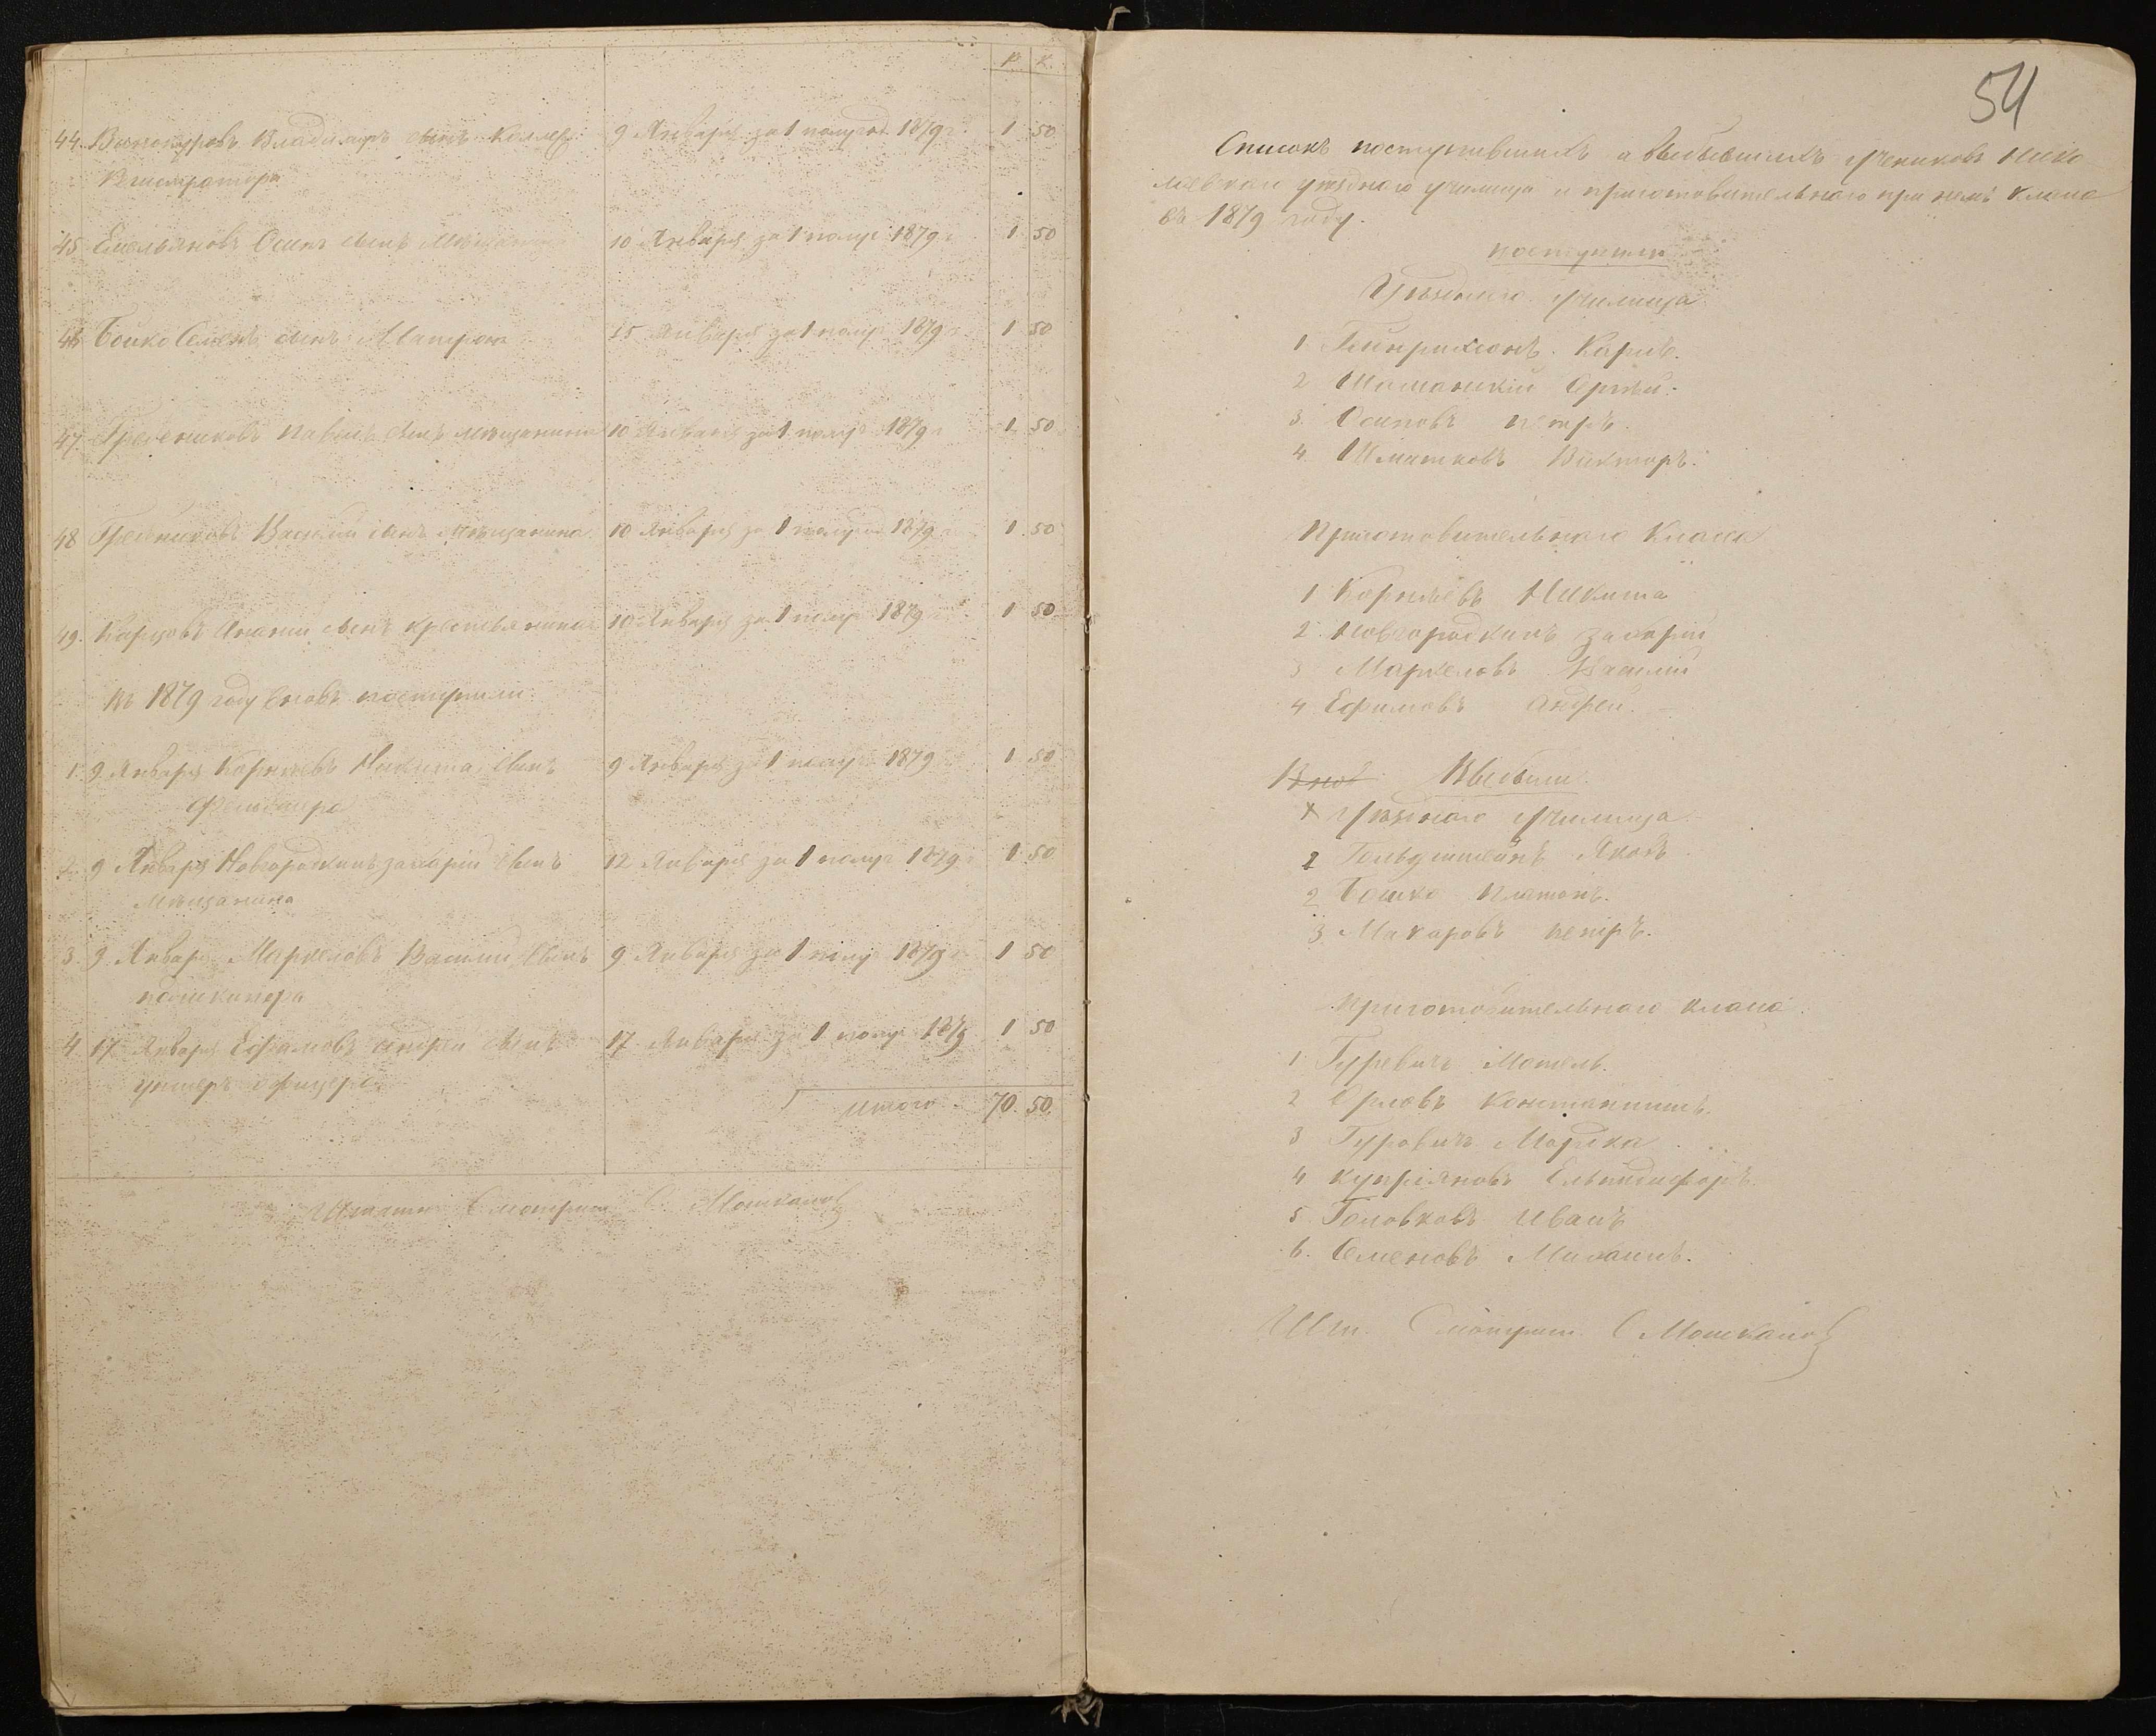 Р. К.
44. Винокуровъ Владимиръ сынъ Коллеж. 9 Января за 1 полугод 1879 г. 1 50
Регистратора
45. Емельяновъ Осипъ сынъ Мѣщанина 10 Января за 1 полуг 1879 г. 1 50
46 Бойко Семенъ сынъ Матроса 15 Января за 1 полуг 1879 г. 1 50
47. Гребенниковъ Павелъ сынъ мѣщанина 10 Января за 1 полуг 1879 г 1 50
48 Гребенниковъ Василий сынъ мѣщанина 10 Января за 1 полугод 1879 г 1 50
49. Карповъ Ананий сынъ крестьянина 10 Января за 1 полуг 1879 г 1 50
Въ 1879 году вновь поступили
1. 9 Января Корнѣевъ Никита, сынъ 9 Января за 1 полуг 1879 1 50
Фельдшера
2. 9 Января Новгородкинъ захарий сынъ 12 Января за 1 полуг 1879 г 1 50
Мѣщанина
3. 9 Января Маркеловъ Василий, сынъ 9 Января за 1 полуг 1879 г 1 50
подшкипера
4 17 Января Ефимовъ андрей сынъ 17 Января за 1 полуг 1879 1 50
унтеръ офицера
итого 70. 50.
Штатн Смотрит С. Мошкалов
54
Списокъ поступившихъ и выбывшихъ учениковъ Нико
лаевскаго уѣзднаго училища и приготовительнаго при немъ класса
въ 1879 году.
поступили
Уѣзднаго училища
1 Гейнрихсонъ Карлъ.
2 Шаманскій Сергѣй.
3. Осиповъ петръ.
4. Шматковъ Викторъ.
Приготовительнаго Класса
1 Корнѣевъ Никита
2. Новгородкинъ захарий
3 Маркеловъ Василий
4 Ефимовъ Андрей.
Внов Выбыли.
Уѣзднаго училища
1 Гольдштейнъ Яковъ
2 Бошко Платонъ.
3. Макаровъ петръ.
приготовительнаго класса.
1 Гуревичъ Мотель.
2 Орловъ Константинъ.
3 Гуровичъ Мордка
4 купріяновъ Елпидифоръ.
5. Головковъ Иванъ
6. Семеновъ Михаилъ.
Шт. Смотрит. С Мошкалов